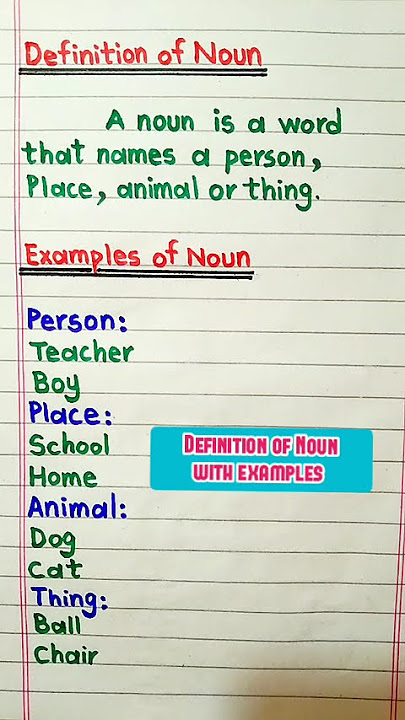 Definition of Noun
A noun is a word
that names a person,
Place, animal or thing.
Examples of Noun
Person:
Teacher
Boy
Place:
School
Home
Animal:
Dog
Cat
Thing:
Ball
Chair
Definition of Noun
with examples